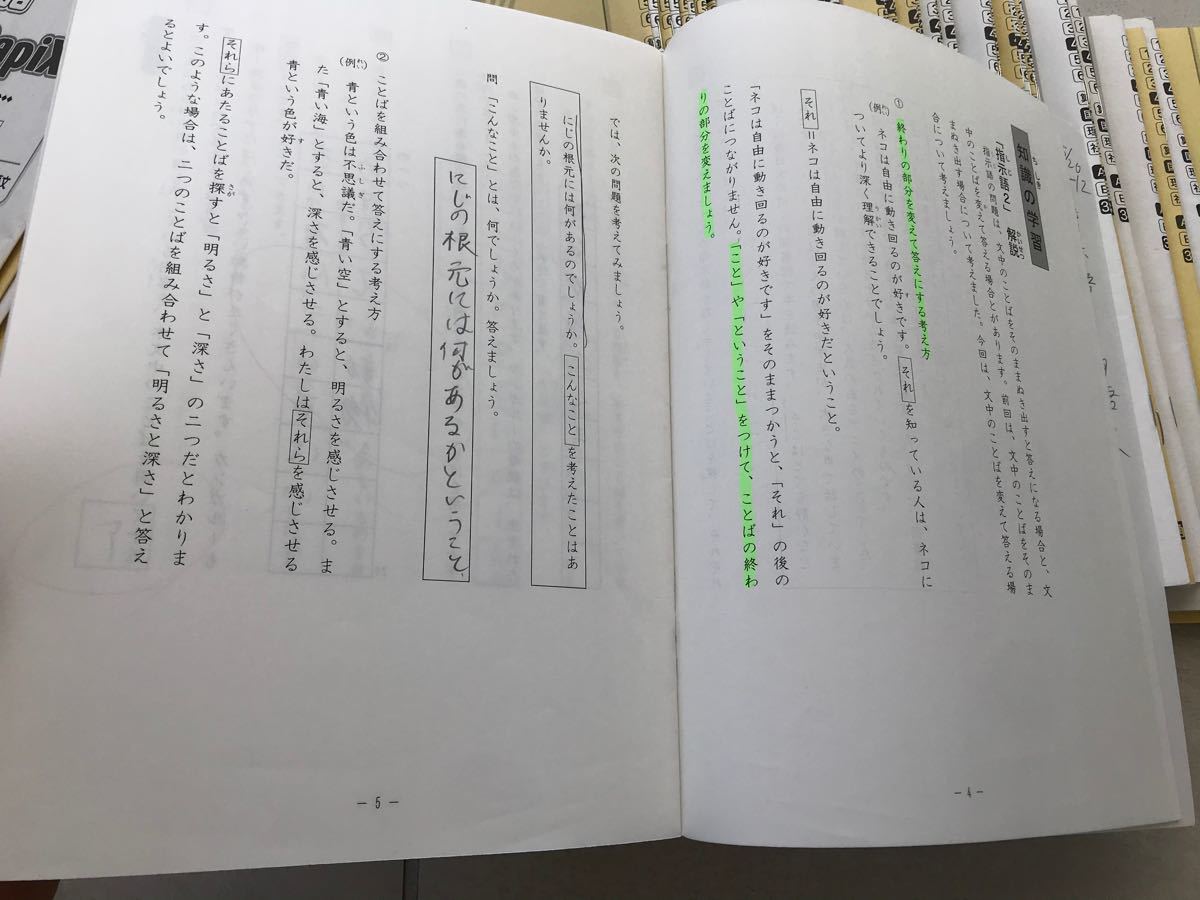 知識の学習
「指示語2」 解説
指示語の問題は、文中のことばをそのままぬき出すと答えになる場合と、文
中のことばを変えて答える場合とがあります。前回は、文中のことばをそのま
まぬき出す場合について考えました。今回は、文中のことばを変えて答える場
合について考えましょう。
① 終わりの部分を変えて答えにする考え方
(例) ネコは自由に動き回るのが好きです。それを知っている人は、ネコに
ついてより深く理解できることでしょう。
それ=ネコは自由に動き回るのが好きだということ。
「ネコは自由に動き回るのが好きです」をそのままつかうと、「それ」の後の
ことばにつながりません。「こと」や「ということ」をつけて、ことばの終わ
りの部分を変えましょう。
― 4 ―
では、次の問題を考えてみましょう。
にじの根元には何があるのでしょうか。こんなことを考えたことはあ
りませんか。
問 「こんなこと」とは、何でしょうか。答えましょう。
にじの根元には何があるかということ。
② ことばを組み合わせて答えにする考え方
(例) 青という色は不思議だ。「青い空」とすると、明るさを感じさせる。ま
た「青い海」とすると、深さを感じさせる。わたしはそれらを感じさせる
青という色が好きだ。
それらにあたることばを探すと「明るさ」と「深さ」の二つだとわかりま
す。このような場合は、二つのことばを組み合わせて「明るさと深さ」と答え
るとよいでしょう。
― 5 ―